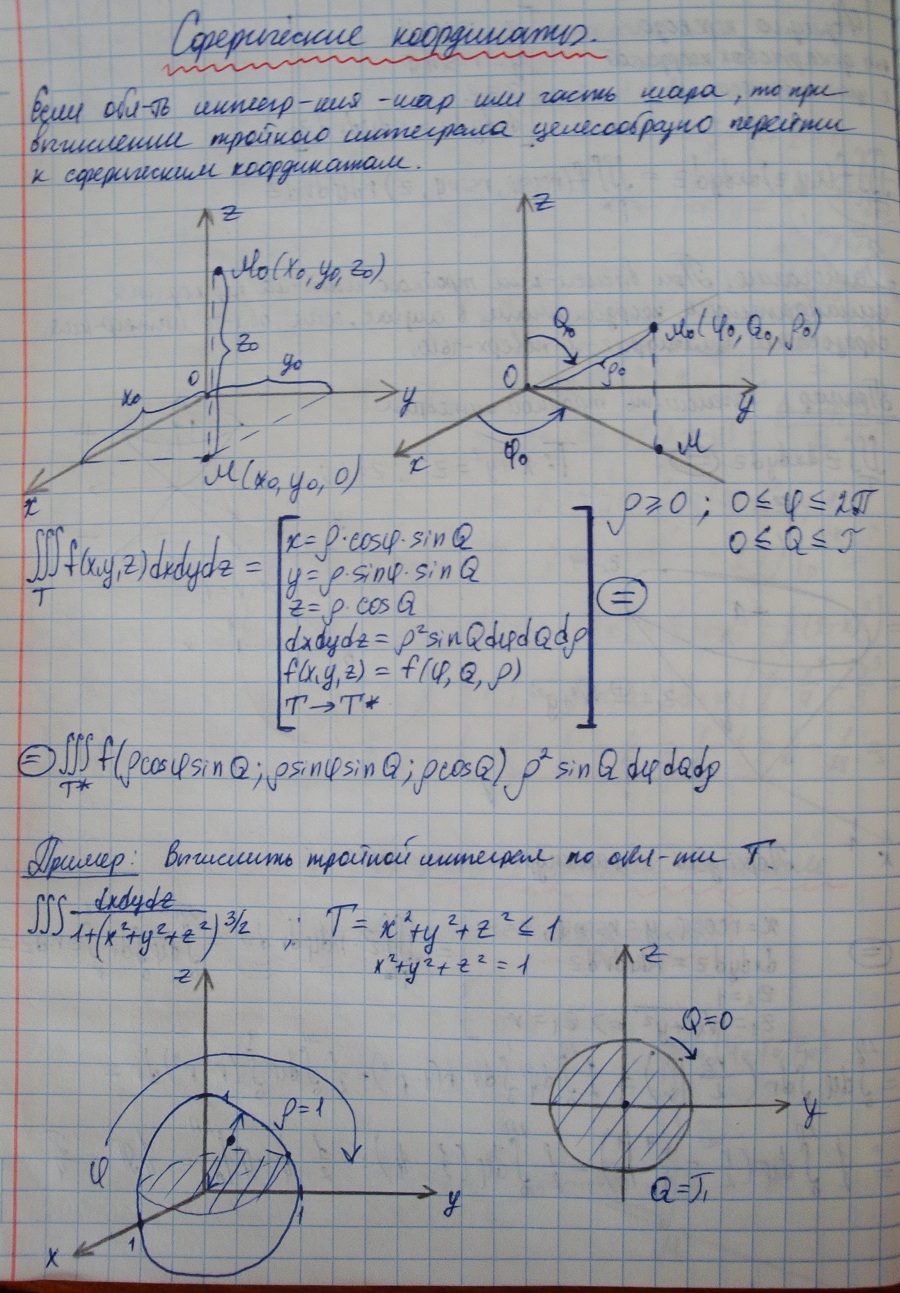 Сферические координаты.
Если обл-ть интегр-ния -шар или часть шара, то при
вычислении тройного интеграла целесообразно перейти
к сферическим координатам.
z
M₀(x₀, y₀, z₀)
z₀
x₀
0
y₀
y
x
M(x₀, y₀, 0)
z
Q₀
M₀(φ₀, Q₀, ρ₀)
ρ₀
O
y
x
φ₀
M
ρ ≥ 0 ; 0 ≤ φ ≤ 2π
0 ≤ Q ≤ π
∭f(x,y,z)dxdydz =
T
x = ρ·cosφ·sinQ
y = ρ·sinφ·sinQ
z = ρ·cosQ
dxdydz = ρ²sinQdφdQdρ
f(x,y,z) = f(φ, Q, ρ)
T → T*
=
= ∭f(ρcosφsinQ; ρsinφsinQ; ρcosQ) ρ² sinQ dφdQdρ
T*
Пример: Вычислить тройной интеграл по обл-ти T.
∭ dxdydz / 1+(x²+y²+z²)^3/2 ; T = x²+y²+z² ≤ 1
x²+y²+z² = 1
z
1
ρ=1
φ
y
1
1
x
z
Q=0
y
Q=π